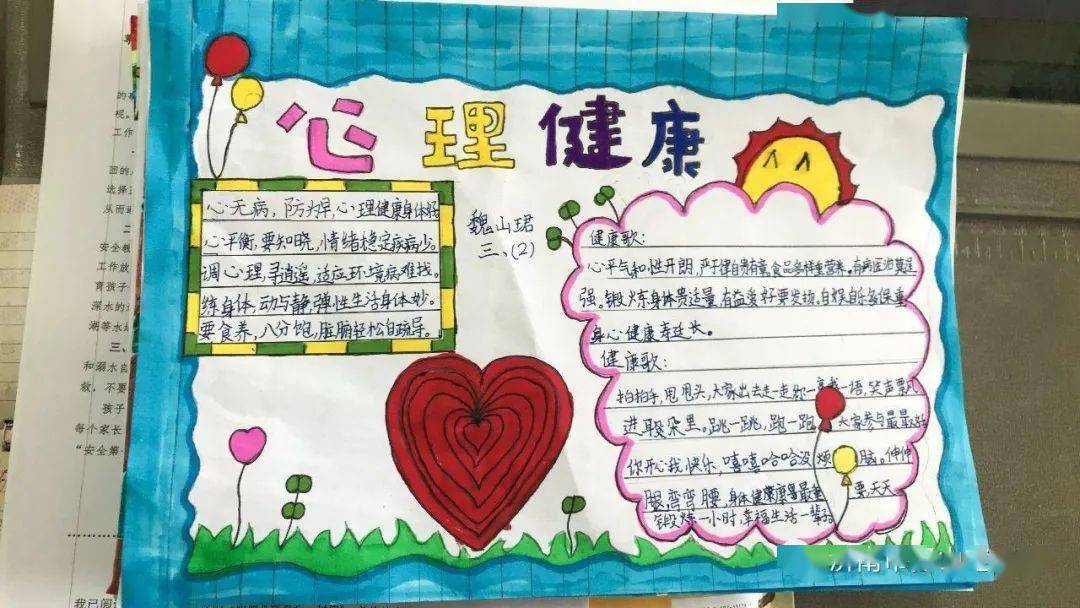 心理健康
心无病，防为早，心理健康身体好
心平衡，要知晓，情绪稳定疾病少。
调心理，寻逍遥，适应环境病难找。
练身体，动与静，弹性生活身体妙。
要食养，八分饱，脏腑轻松自疏导。
魏山珺
三、(2)
健康歌：
心平气和性开朗，严于律自贵有章，食品多样重营养。有病医治莫逞
强。锻炼身体贵适量，有益爱好要发扬，自娱自乐多保重
身心健康寿延长。
健康歌：
拍拍手，甩甩头，大家出去走一走，你一言我一语，笑声飘
进耳朵里。跳一跳，跑一跑，大家参与最最好
你开心我快乐，嘻嘻哈哈没烦脑。伸伸
腿弯弯腰，身体健康最重要，天天
锻炼一小时，幸福生活一辈子。
安全教
工作放
育孩子
深水的
潮等水
三、
和溺水自
救，不要
孩子
每个家长
“安全第一
我已阅